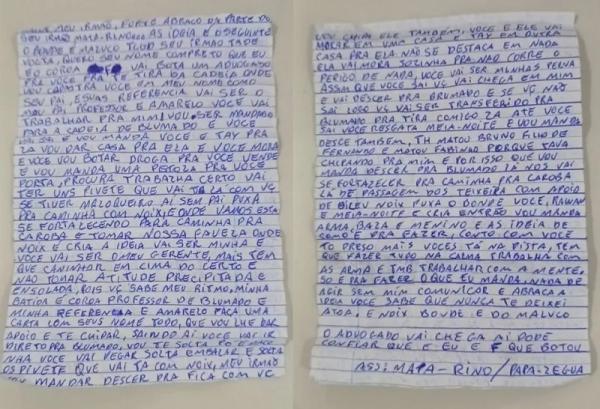 MEU IRMÃO, FORTE ABRAÇO DA PARTE DO
SEU IRMÃO MATA-RINO AS IDEIA E DSEGUINTE
O BONDE E MALUCO TUDO SEU IRMÃO TA DE
VOLTA, QUERO SEU NOME COMPRETO QUE
EU COROA VAI BOTA UM ADVOGADO
PRA VOCE TE TIRA DA CADEIA ONDE
VOU CADASTRA VOCE EM MEU NOME COMO
SEU PAI, ESSAS REFERENCIA VAI SER O
MEU PAI PROFESSOR E AMARELO VOCE VAI
TRABALHAR PRA MIM, VOU SER MANDADO
PARA A CADEIA DE BLUMADO E VOCE
EU VOU MANDA VOCE E TAY PRA
LA VOU DAR CASA PRA ELA E VOCE MORA
E VOCE VOU BOTAR DROGA PRA VOCE VENDE
E VOU MANDA UMA PEROLA PRA VOCE
PORTA, PROCURA TRABALHA CERTO VAI
TER UNS PIVETE QUE VAI TA LA COM VC
SE TIVER MALOQUEIRO AI SEM PAI PUXA
PRA CAMINHA COM NOIX, ONDE VAMOS ESTA
SE FORTALECENDO PARA CAMINHA PRA
CAROBA E TOMAR NOSSA FAVELA ONDE
NOIX E CRIA A IDEIA VAI SER MINHA E
VOCE VAI SER O MEU GERENTE, MAIS TEM
QUE CAMINHAR EM CIMA DO CERTO E
NÃO TOMAR ATITUDE PRECIPITADA E
ENSOLADA, POIS VC SABE MEU RITMO, MINHA
BATIDA E COROA PROFESSOR DE BLUMADO E
MINHA REFERENCIA E AMARELO FAÇA UMA
CARTA COM SEUS NOME TODO, QUE VOU LHE DAR
APOIO E TE CUIDAR, SAINDO AI VOCE VAI IR
DIRETO PRA BLUMADO, VOU TE SOLTA PO E MACO
NHA VOCE VAI PEGAR SOLTA EMBALAR E SOLTA
OS PIVETE QUE VAI TA COM NOIX, MEU IRMÃO
VOU MANDAR DESCER PRA FICA COM VC
VOU CUIDA ELE TAMBEM, VOCE E ELE VAI
MORAR EM UMA CASA E TAY EM OUTRA
CASA PRA ELA NÃO SE DESTACA EM NADA
ELA VAI MORA SOZINHA PRA NÃO CORRE
PERIGO DE NADA, VOCE VAI SER MINHAS PELVA
ASSIM QUE VOCE SAI VC VAI CHEGA EM MIM
E VAI DESCER PRA BRUMADO E SE VC NÃO
SAI LOGO VC VAI SER TRANSFERIDO PRA
BLUMADO PRA TIRA COMIGO LA ATE VOCE
SAI VOCE RESGATA MEIA-NOITE E VOU MANDA
DESCE TAMBEM, TH MATOU BRUNO FILHO DE
FERNANDO E MATOU FABINHO PORQUE TAVA
CHIPANDO PRA MIM E POR ISSO QUE VOU
MANDA DESCER PRA BLUMADO LA NOIS VAI
SE FORTALECER PRA CAMINHA PRA CAROBA
LA DE PASSAGEM DOS TEIXEIRA COM APOIO
DE BILEU NOIX PUXA O BONDE VOCE, RAWAN
E MEIA-NOITE E CRIA ENTÃO VOU MANDA
ARMA, BALA E MENINO E AS IDEIA DE
COMO E PRA FAZER, CONTO COM VOCE
TO PRESO MAIS VOCES TÁ NA PISTA, TEM
QUE FAZER TUDO NA CALMA TRABALHA COM
AS ARMA E TMB TRABALHAR COM A MENTE.
SO E PRA FAZER O QUE EU MANDA, NADA DE
AGIR SEM MIM COMUNICAR E ABRAÇA A
IDEIA VOCE SABE QUE NUNCA TE DEIXEI
ATOA, E NOIX BONDE E DO MALUCO
O ADVOGADO VAI CHEGA AI PODE
CONFIAR QUE E EU E F QUE BOTOU
ASS: MATA-RINO / PAPA-ZEGUA